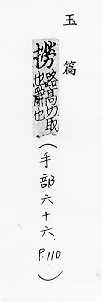 玉篇
撈路高切取
也辭也
(手部六十六 P.110)